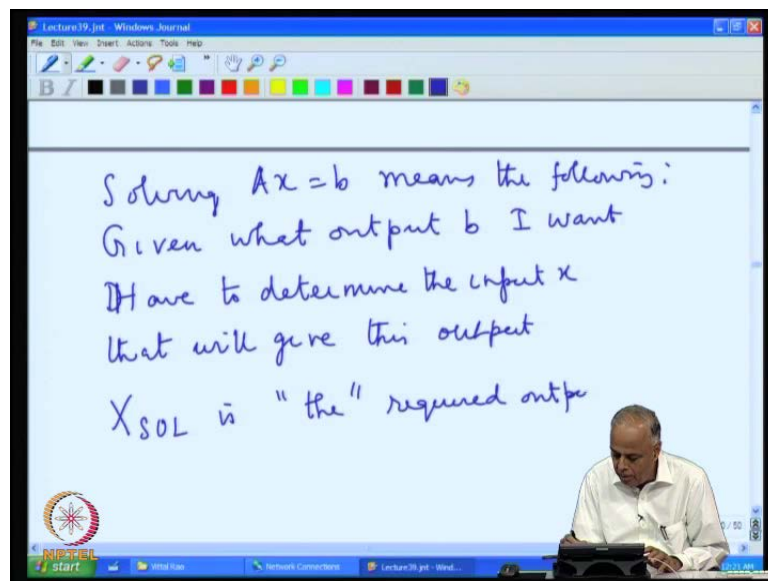 Lecture39.jnt - Windows Journal
File Edit View Insert Actions Tools Help
B I
Solving Ax = b means the following:
Given what output b I want
Have to determine the input x
that will give this output
X_SOL is "the" required outpu
NPTEL
start Vittal Rao Network Connections Lecture39.jnt - Wind... 12:21 AM